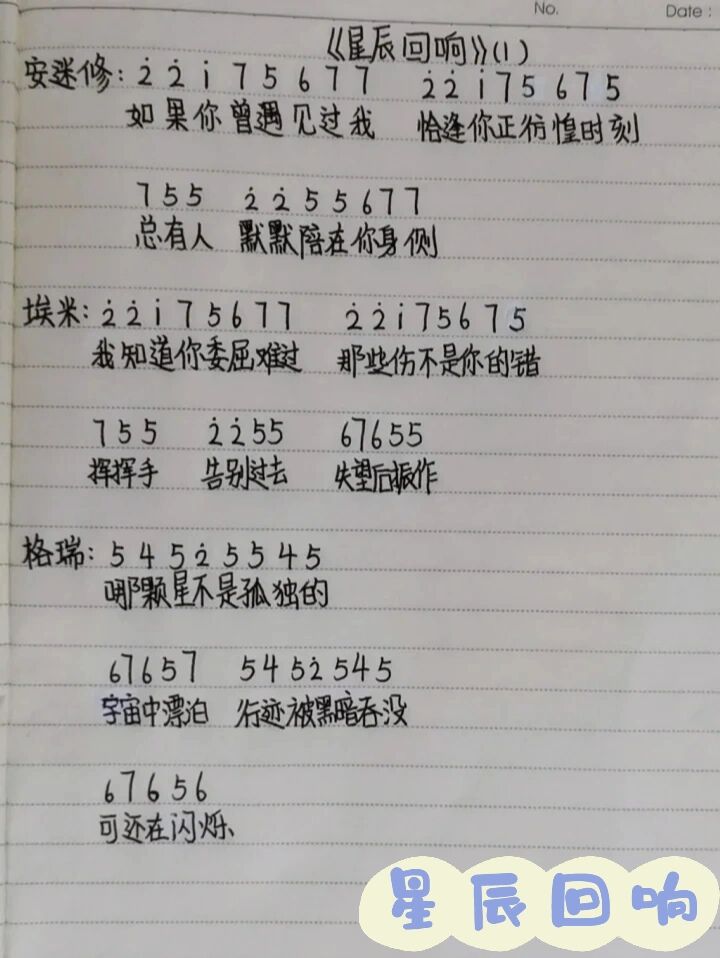 No. Date:
《星辰回响》(1)
安迷修: 2̇ 2̇ 1̇ 7 5 6 7 7 2̇ 2̇ 1̇ 7 5 6 7 5
如果你曾遇见过我 恰逢你正彷惶时刻
7 5 5 2̇ 2̇ 5 5 6 7 7
总有人 默默陪在你身侧
埃米: 2̇ 2̇ 1̇ 7 5 6 7 7 2̇ 2̇ 1̇ 7 5 6 7 5
我知道你委屈难过 那些伤不是你的错
7 5 5 2̇ 2̇ 5 5 6 7 6 5 5
挥挥手 告别过去 失望后振作
格瑞: 5 4 5 2̇ 5 5 4 5
哪颗星不是孤独的
6 7 6 5 7 5 4 5 2̇ 5 4 5
宇宙中漂泊 行迹被黑暗吞没
6 7 6 5 6
可还在闪烁、
星辰回响